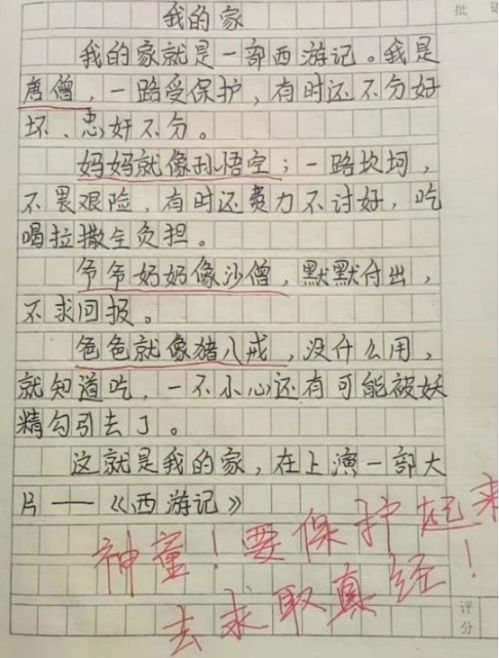 我的家
我的家就是一部西游记。我是
唐僧，一路受保护，有时还不分好
坏、忠奸不分。
妈妈就像孙悟空；一路坎坷，
不畏艰险，有时还费力不讨好，吃
喝拉撒全负担。
爷爷奶奶像沙僧，默默付出，
不求回报。
爸爸就像猪八戒，没什么用，
就知道吃，一不小心还有可能被妖
精勾引去了。
这就是我的家，在上演一部大
片——《西游记》
神童！要保护起来
去求取真经！
批
评
分